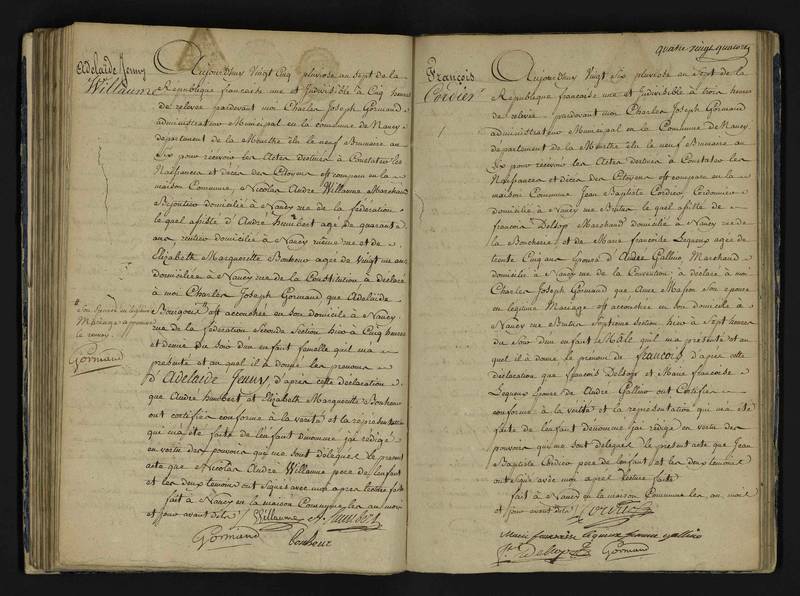 Adelaide Jenny
Willaume
Aujourd'huy Vingt Cinq pluviose an sept de la
République francaise une et Indivisible à Cinq heures
de relevée pardevant moi Charles Joseph Gormand
administrateur Municipal en la commune de Nancy
departement de la Meurthe élu le neuf Brumaire an
Six pour recevoir les Actes destinés à Constater les
Naissances et décès des Citoyens est comparu en la
maison Commune, Nicolas André Willaume Marchand
Bijoutier domicilié à Nancy rue de la fédération
lequel assisté d'André humbert agé de quarante
ans, rentier domicilié à Nancy même rue et de
Elizabeth Marguerite Bonheur agée de vingt ans
domiciliée à Nancy rue de la Constitution, à déclaré
à moi Charles Joseph Gormand que Adelaide
Bourgeois # est accouchée en son domicile à Nancy
rue de la fédération Seconde Section hier à Cinq heures
et demie du soir d'un enfant femelle qu'il m'a
présenté et au quel il a donné les prenoms
d'Adelaide Jenny, d'après cette déclaration
que André humbert et Elizabeth Marguerite Bonheur
ont certifié conforme à la vérité et la représentation
qui m'a été faite de l'enfant dénommé j'ai rédigé
en vertu des pouvoirs qui me sont délégués le present
acte que Nicolas André Willaume pere de l'enfant
et les deux temoins ont signés avec moi apres lecture faite
fait à Nancy en la maison Commune les an mois
et jour avant dits / Willaume A. humbert
Gormand bonheur
# Son épouse en légitime
Mariage approuvé
le renvoy
Gormand
quatre vingt quatorze
François
Cordier
Aujourd'huy Vingt Six pluviose an sept de la
République francaise une et Indivisible à trois heures
de relevée pardevant moi Charles Joseph Gormand
administrateur Municipal en la Commune de Nancy
departement de la Meurthe élu le neuf Brumaire an
Six pour recevoir les Actes destinés à Constater les
Naissances et décès des Citoyens est comparu en la
maison Commune Jean Baptiste Cordier Cordonnier
domicilié à Nancy rue Brutus le quel assisté de
francois Delsop Marchand domicilié à Nancy rue de
la Boucherie et de Marie francoise Lequeux agée de
trente Cinq ans épouse d'André Gallino Marchand
domicilié à Nancy rue de la Convention à déclaré à moi
Charles Joseph Gormand que Anne Masson Son épouse
en légitime Mariage est accouchée en Son domicile à
Nancy rue Brutus Septieme Section hier à Sept heures
du Soir d'un enfant Mâle qu'il m'a présenté et au
quel il a donné le prenom de francois, d'après cette
déclaration que francois Delsop et Marie francoise
Lequeux épouse de André Gallino ont Certifiés
conforme à la vérité et la représentation qui m'a été
faite de l'enfant dénommé j'ai rédigé en vertu des
pouvoirs qui me sont délégués le présent acte que Jean
Baptiste Cordier pere de l'enfant et les deux temoins
ont signé avec moi après lecture faite
fait à Nancy en la maison Commune les an, mois
et jour avant dits / Cordier
Marie francoise lequeux femme gallino
fs. delsop Gormand